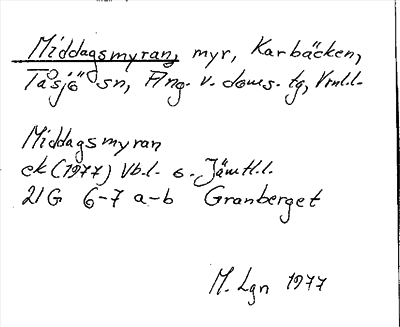 Middagsmyran, myr, Karbäcken,
Tåsjö sn, Ång. v. doms. tg, Vnl.l.
Middagsmyran
ek (1977) Vb.l. o. Jämtl.l.
21G 6-7 a-b Granberget
M. Lgn 1977